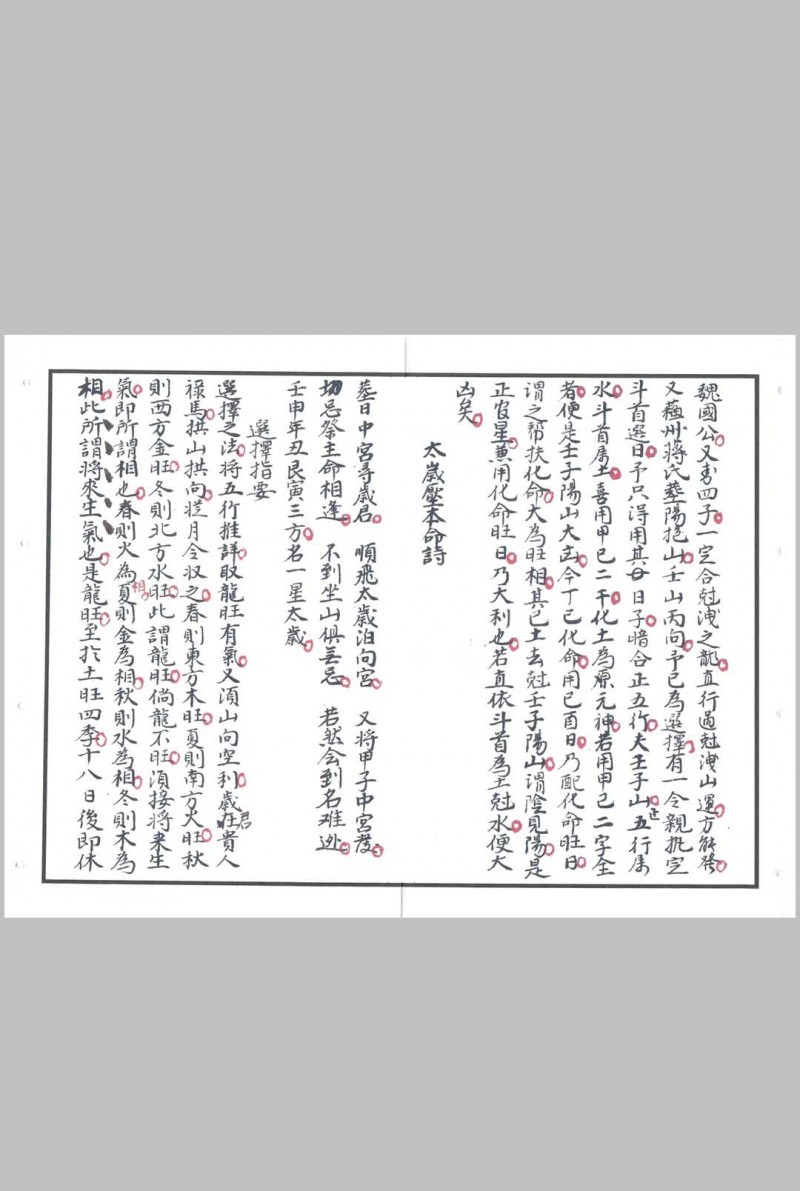 魏國公。又書四子。一定合尅洩之龍。直行過尅洩山。運方能發。
又蘇州蔣氏塟陽抱山。壬山丙向。予已為選擇。有一令親批定
斗首選日。予只得用其母日子。暗合正五行。夫壬子山。正五行属
水。斗首属土。喜用甲己二干化土為原元神。若用甲己二字全
者。便是壬子陽山大凶。今丁己化命。用己酉日。乃配化命旺日。
謂之帮扶化命。大為旺相。其己土去尅壬子陽山。謂陰見陽。是
正官星。兼用化命旺日。乃大利也。若直依斗首為土尅水。便大
凶矣。
太歲壓本命詩
塟日中宮尋歲君。順飛太歲泊向宮。又將甲子中宮發。
切忌祭主命相逢。不到坐山俱無忌。若然会到名难逊。
壬申年丑艮寅三方。名一星太歲。
選擇指要
選擇之法。將五行推詳。取龍旺有氣。又須山向空利。歲君在貴人
祿馬。拱山拱向。從月令収之。春則東方木旺。夏則南方火旺。秋
則西方金旺。冬則北方水旺。此謂龍旺。倘龍不旺。須接將來生
氣。即所謂相也。春則火為相。夏則金為相。秋則水為相。冬則木為
相。此所謂將來生氣也。是龍旺。至於土旺四季。十八日後即休